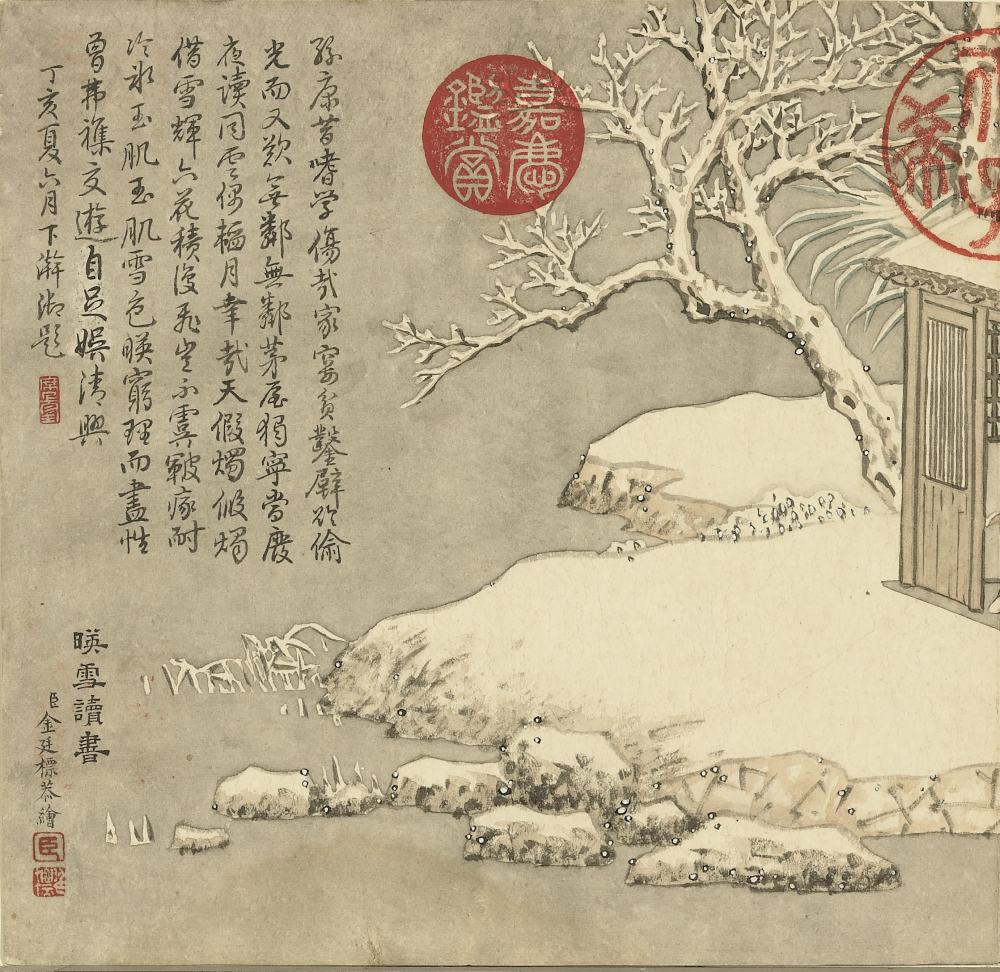 孫康昔嗜学傷哉家窶貧鑿壁以偷
光而又歎無鄰無鄰茅屋獨寧當廢
夜讀同雲偶韞月幸哉天假燭假燭
借雪輝六花積復飛豈不虞皸瘃耐
冷冰玉肌玉肌雪色暎窮理而盡性
曾弗襍交遊自足娛清興
丁亥夏六月下澣御題
暎雪讀書
臣金廷標恭繪
嘉慶鑑賞
臣